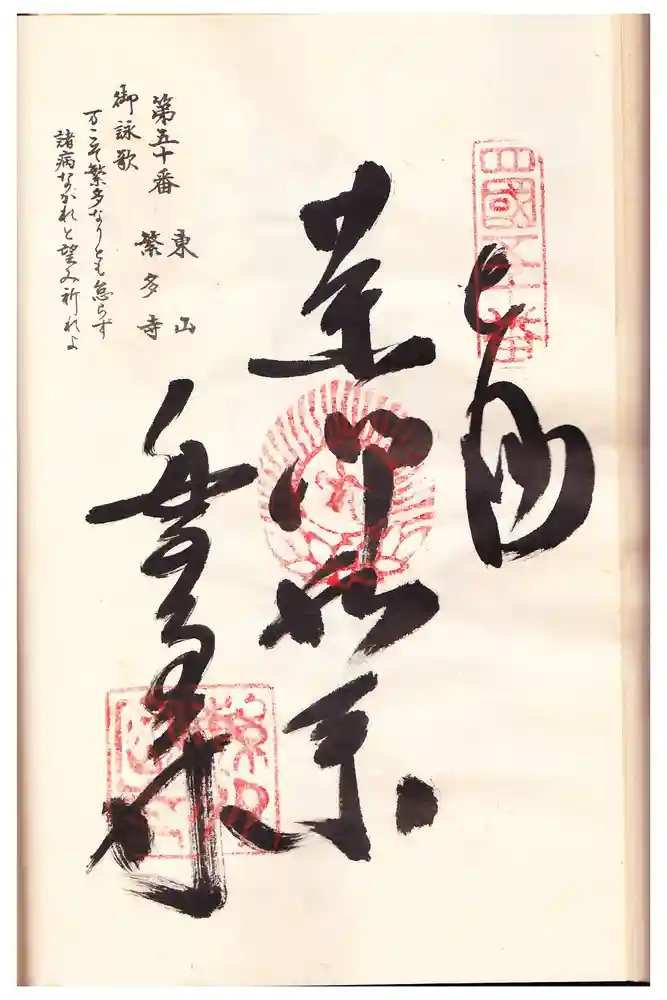 四國五十番
奉納
薬師如来
繁多寺
第五十番
東山
繁多寺
御詠歌
万こそ繁多なりとも怠らず
諸病なかれと望み祈れよ